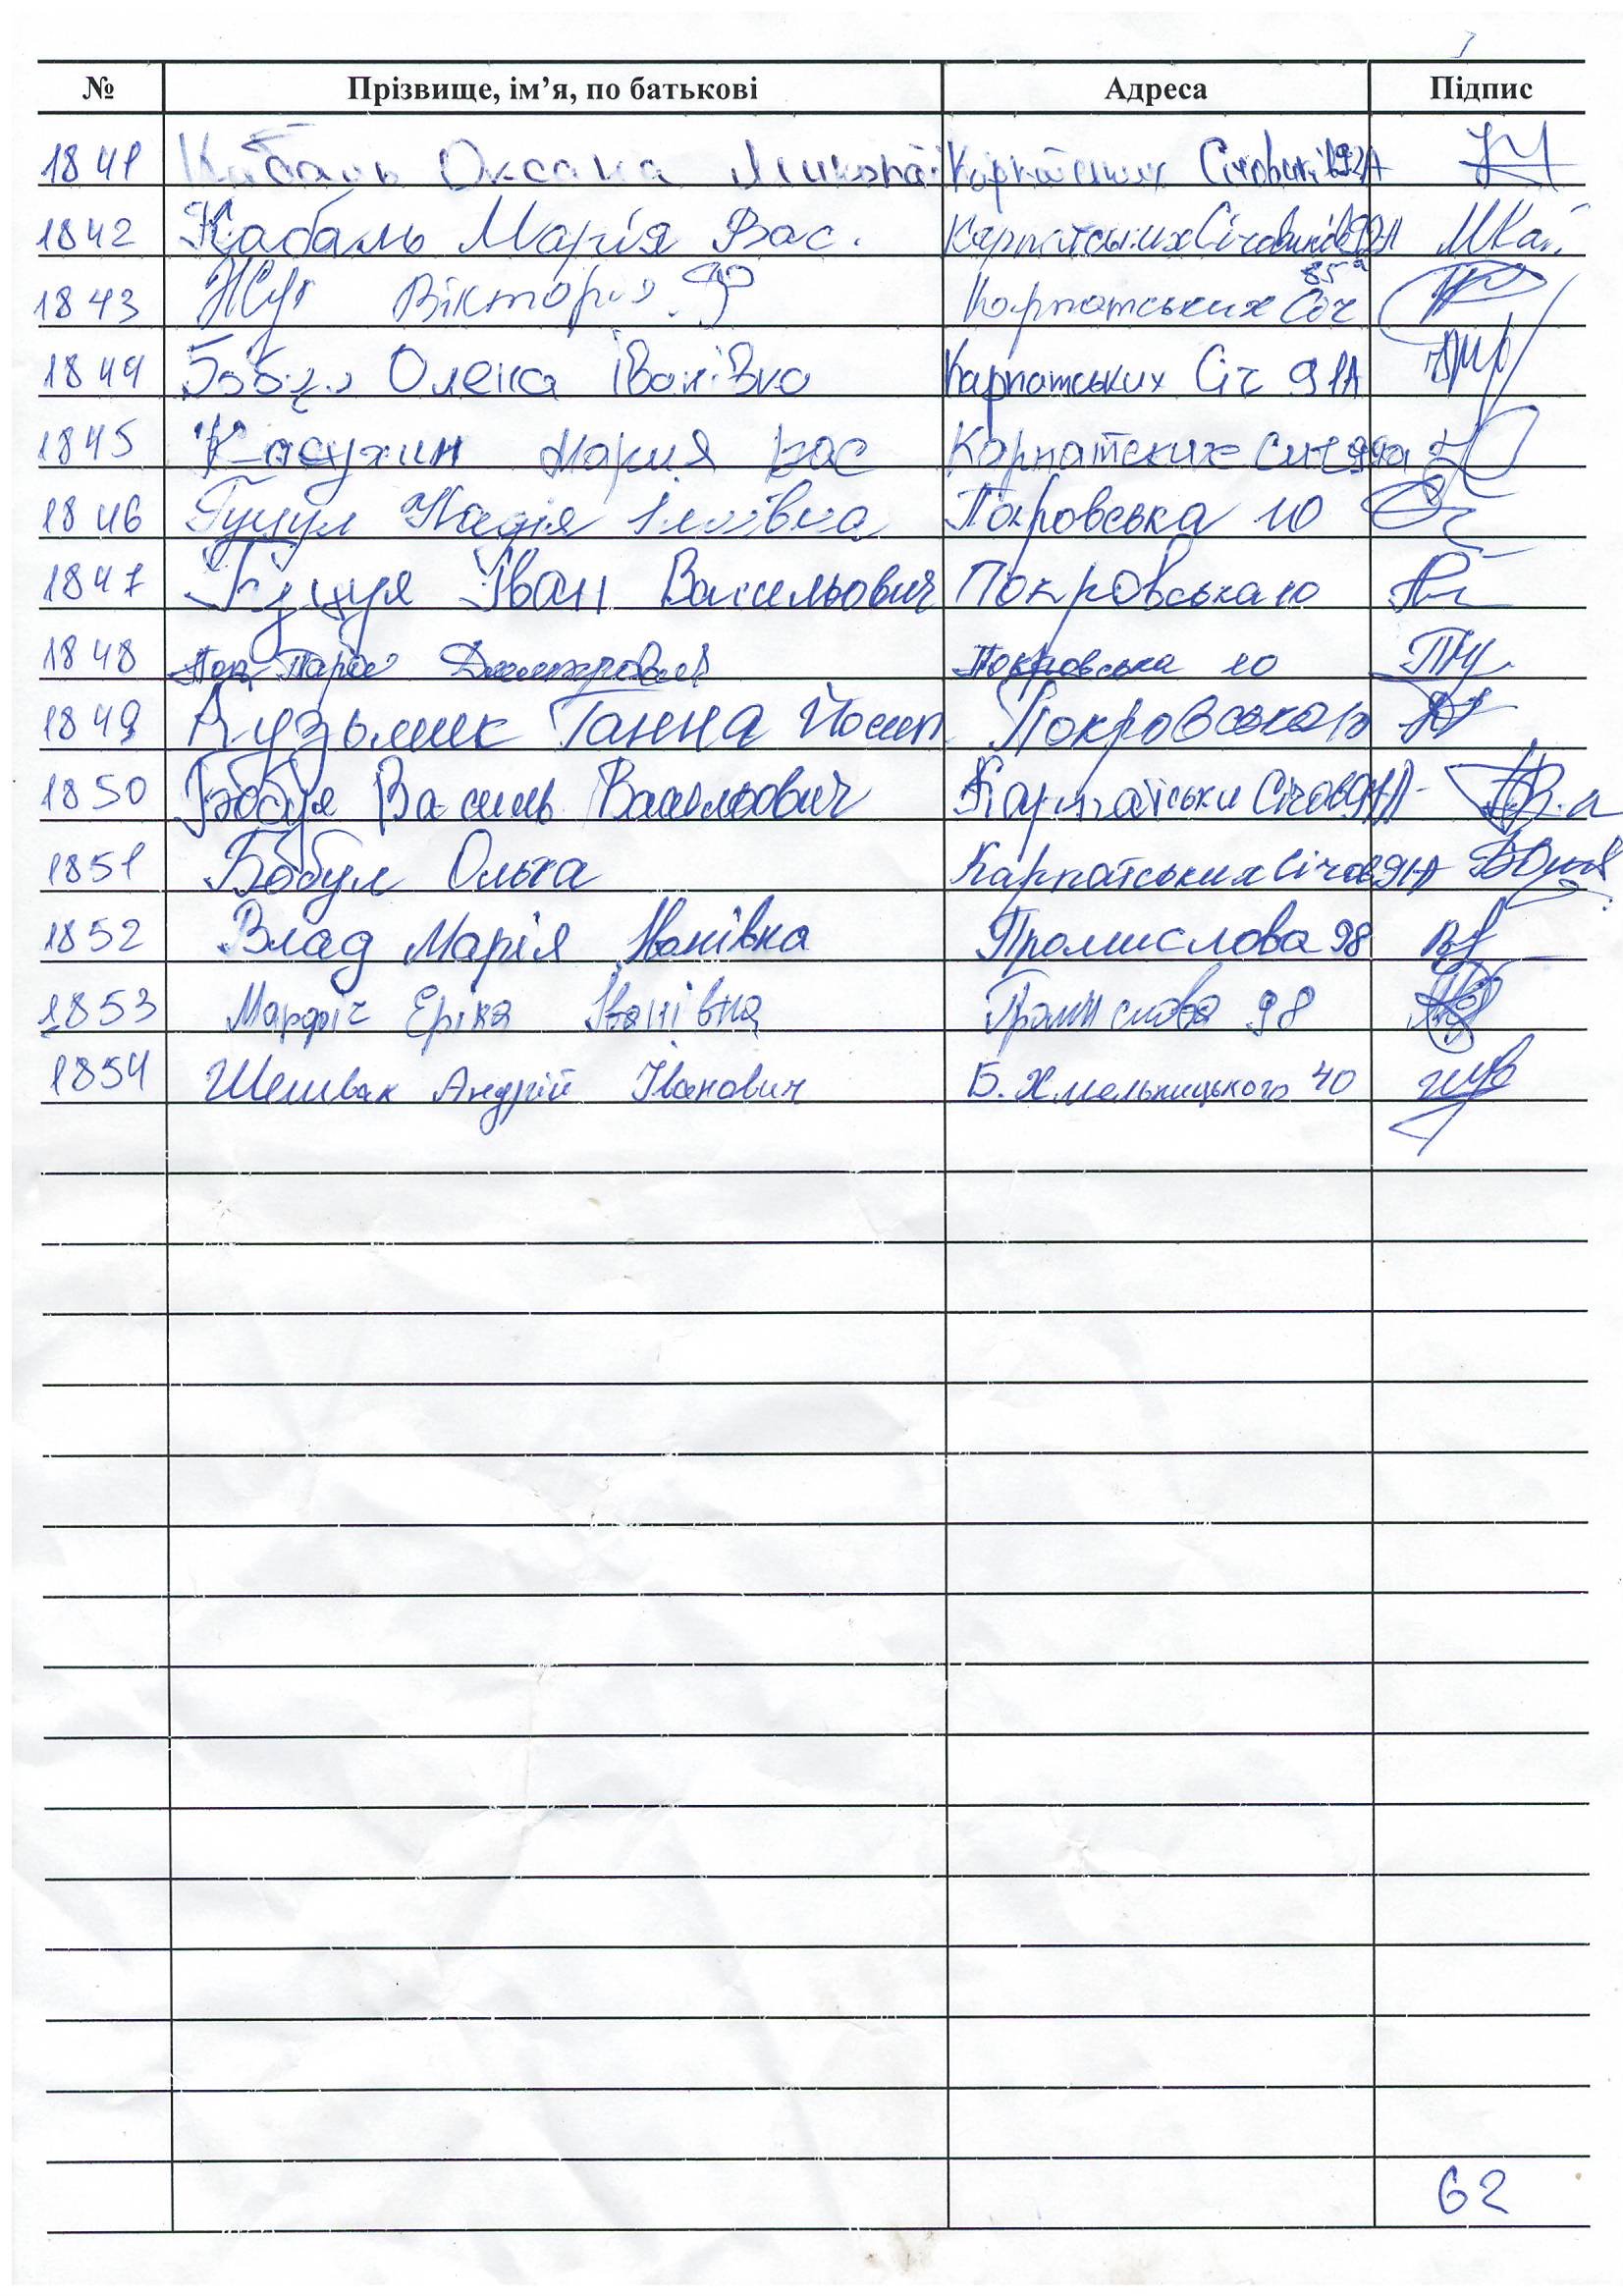 № Прізвище, ім’я, по батькові Адреса Підпис
1841 Кабаль Оксана Микола Карпатських Січовиків 92А
1842 Кабаль Марія Вас. Карпатських Січовиків 92А МКа
85а
1843 Жук Вікторія Карпатських Січ
1844 Олена Іванівна Карпатських Січ 91А
1845 Мария Вас Карпатских Сич 99а
1846 Гуцул Надія Іллівна Покровська 10
1847 Іван Васильович Покровська 10
1848 Поп Дмитрович Покровська 10
1849 Кузьмик Ганна Йосип Покровська 10
1850 Бобул Василь Васильович Карпатськи Січов 91А
1851 Бобул Ольга Карпатських Січов 91А
1852 Влад Марія Іванівна Промислова 98
1853 Еріка Іванівна Промислова 98
1854 Шешвак Андрій Іванович Б. Хмельницького 40
62